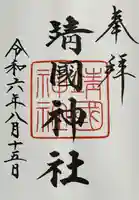 奉拝
靖國神社
令和六年八月十五日
靖國神社